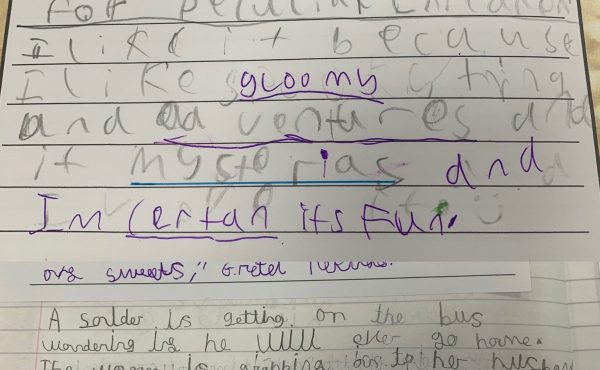 For Peculiar Children
I like it because
I like gloomy thing
and adventures and
it mysterias and
Im Certan its Fun.
ove sweets," Gretel
A solder is getting on the bus
wondering if he will ever go home.
The woman is to her